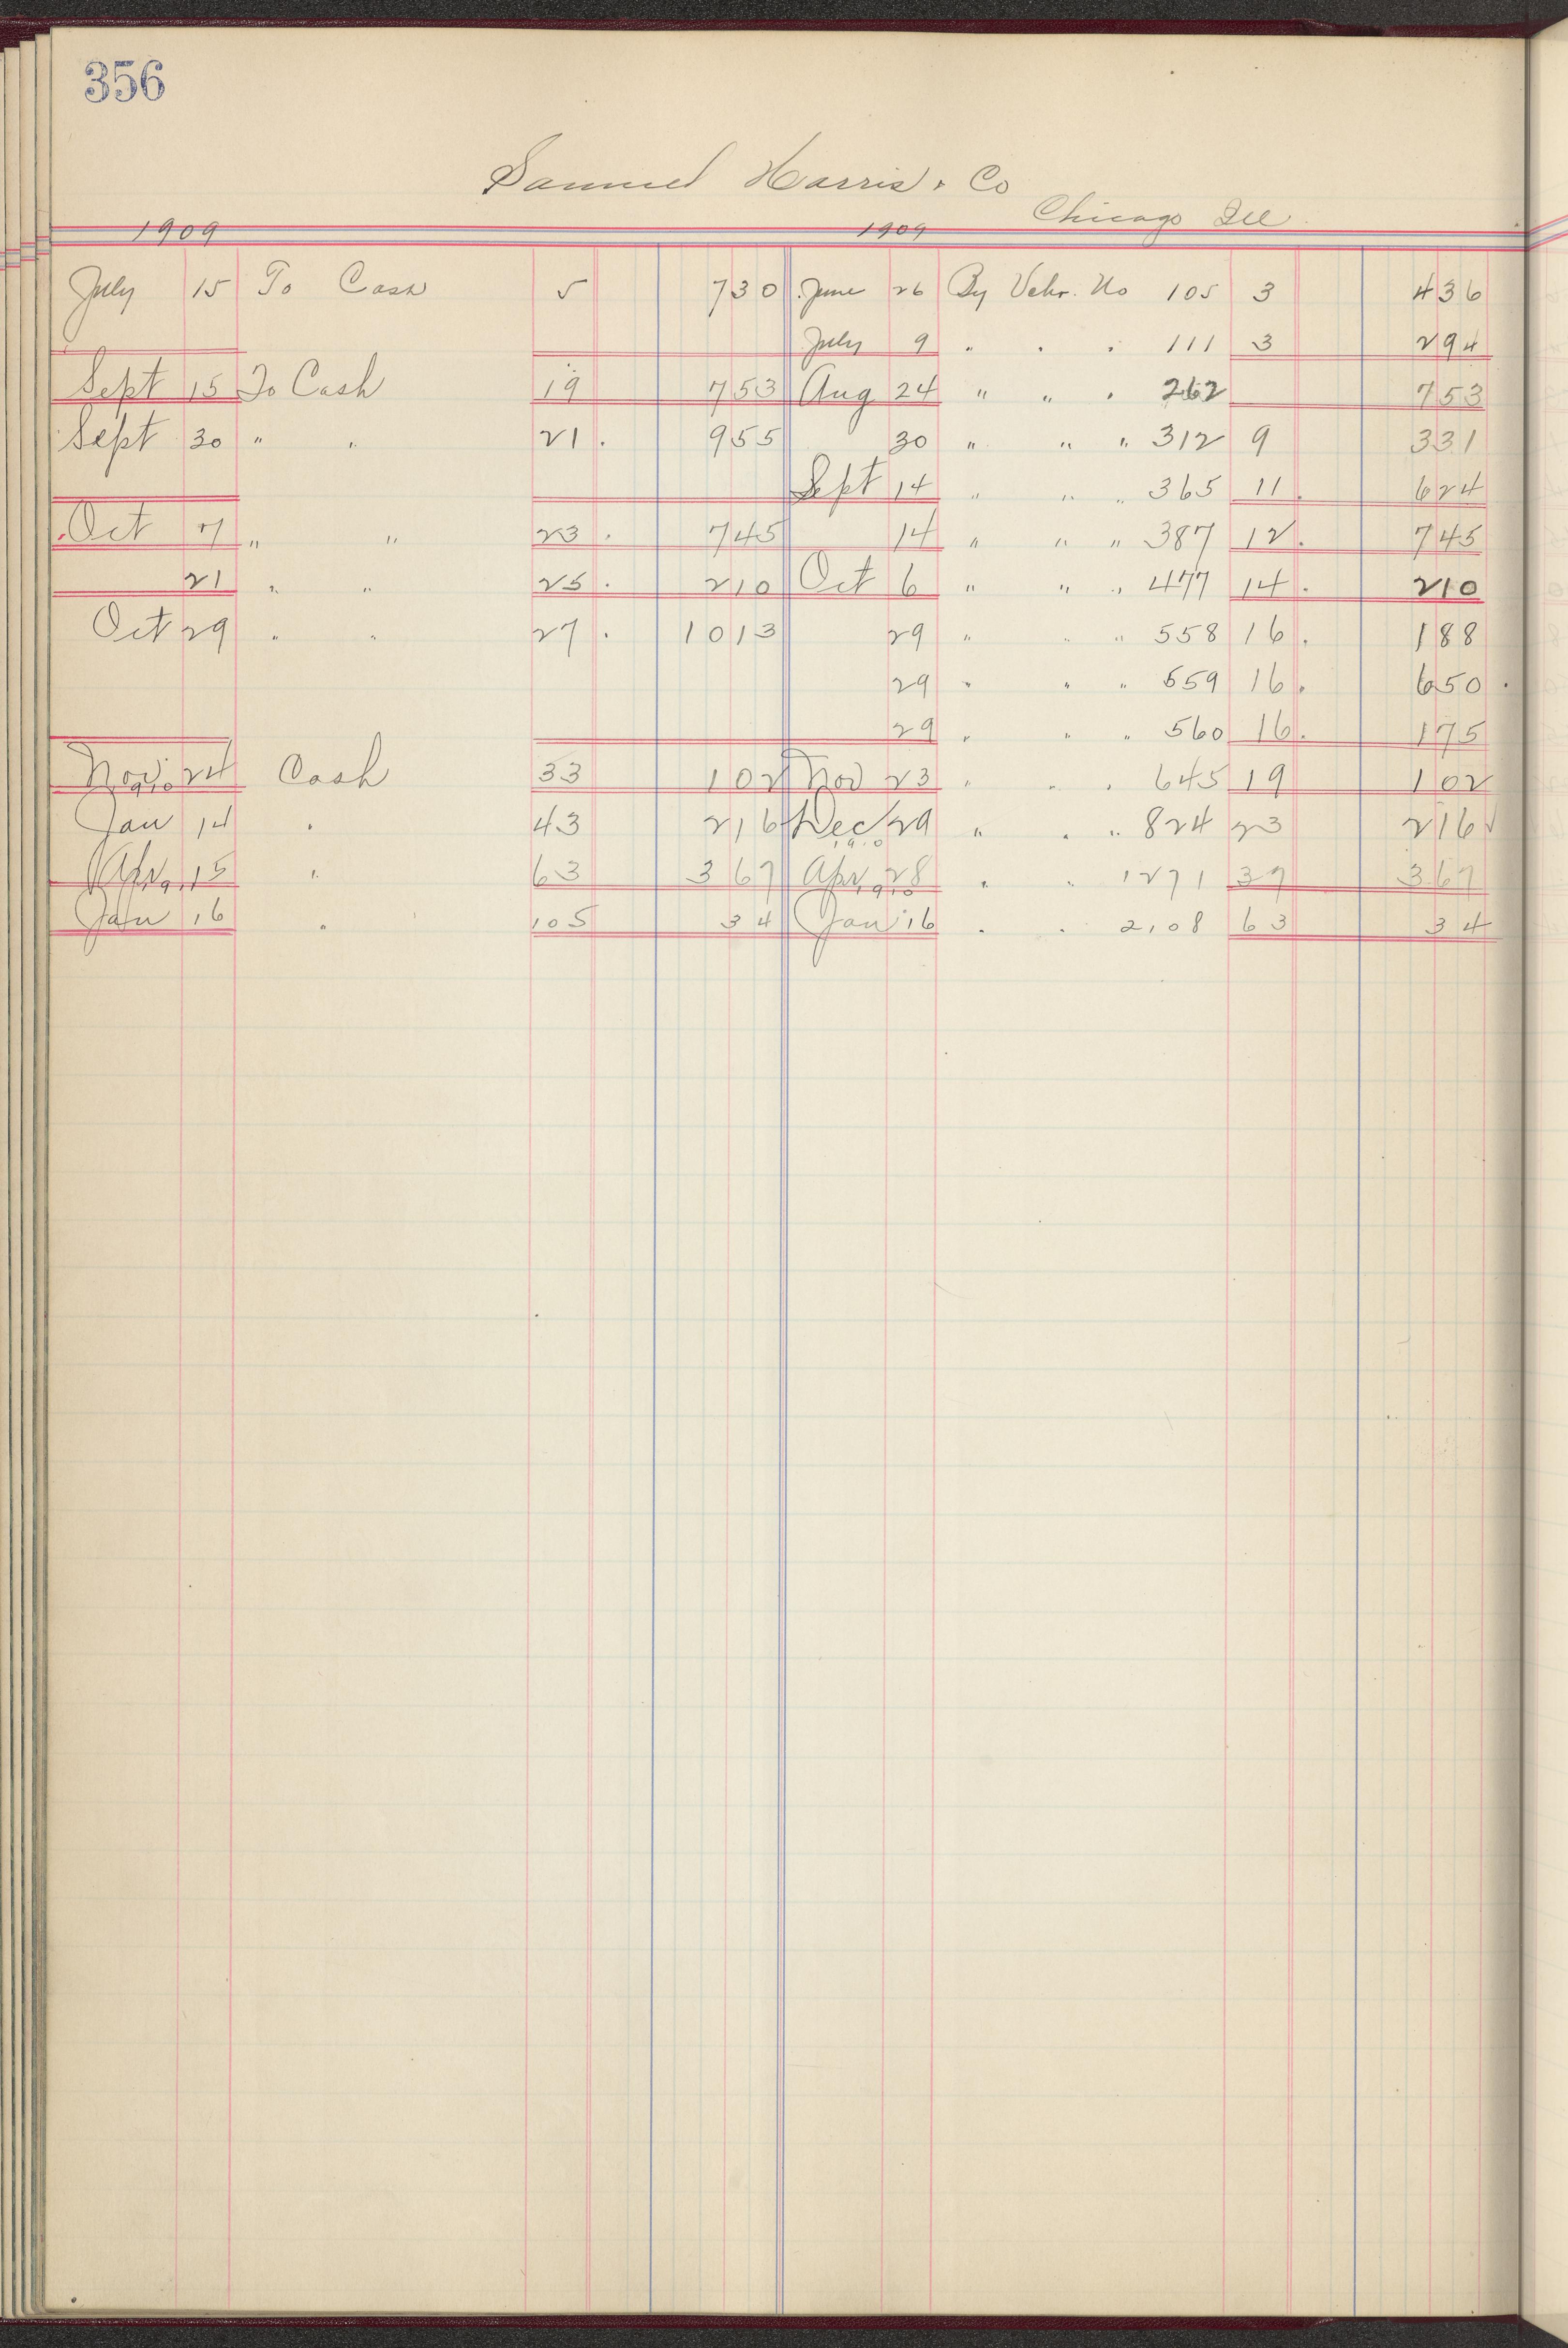 356
Samuel Harris & Co
Chicago Ill
1909 1909
July 15 To Cash 5 730 June 26 By Vchr. No 105 3 436
July 9 " " " 111 3 294
Sept 15 To Cash 19 753 Aug 24 " " " 262 753
Sept 30 " " 21 955 30 " " " 312 9 331
Sept 14 " " " 365 11 624
Oct 7 " " 23 745 14 " " " 387 12 745
21 " " 25 210 Oct 6 " " " 477 14 210
Oct 29 " " 27 1013 29 " " " 558 16 188
29 " " " 559 16 650
29 " " " 560 16 175
Nov 24 Cash 33 102 Nov 23 " " " 645 19 102
1910
Jan 14 " 43 216 Dec 29 " " " 824 23 216
1910
Apr 15 " 63 367 Apr 28 " " 1271 37 367
1910
Jan 16 " 105 34 Jan 16 " " 2108 63 34